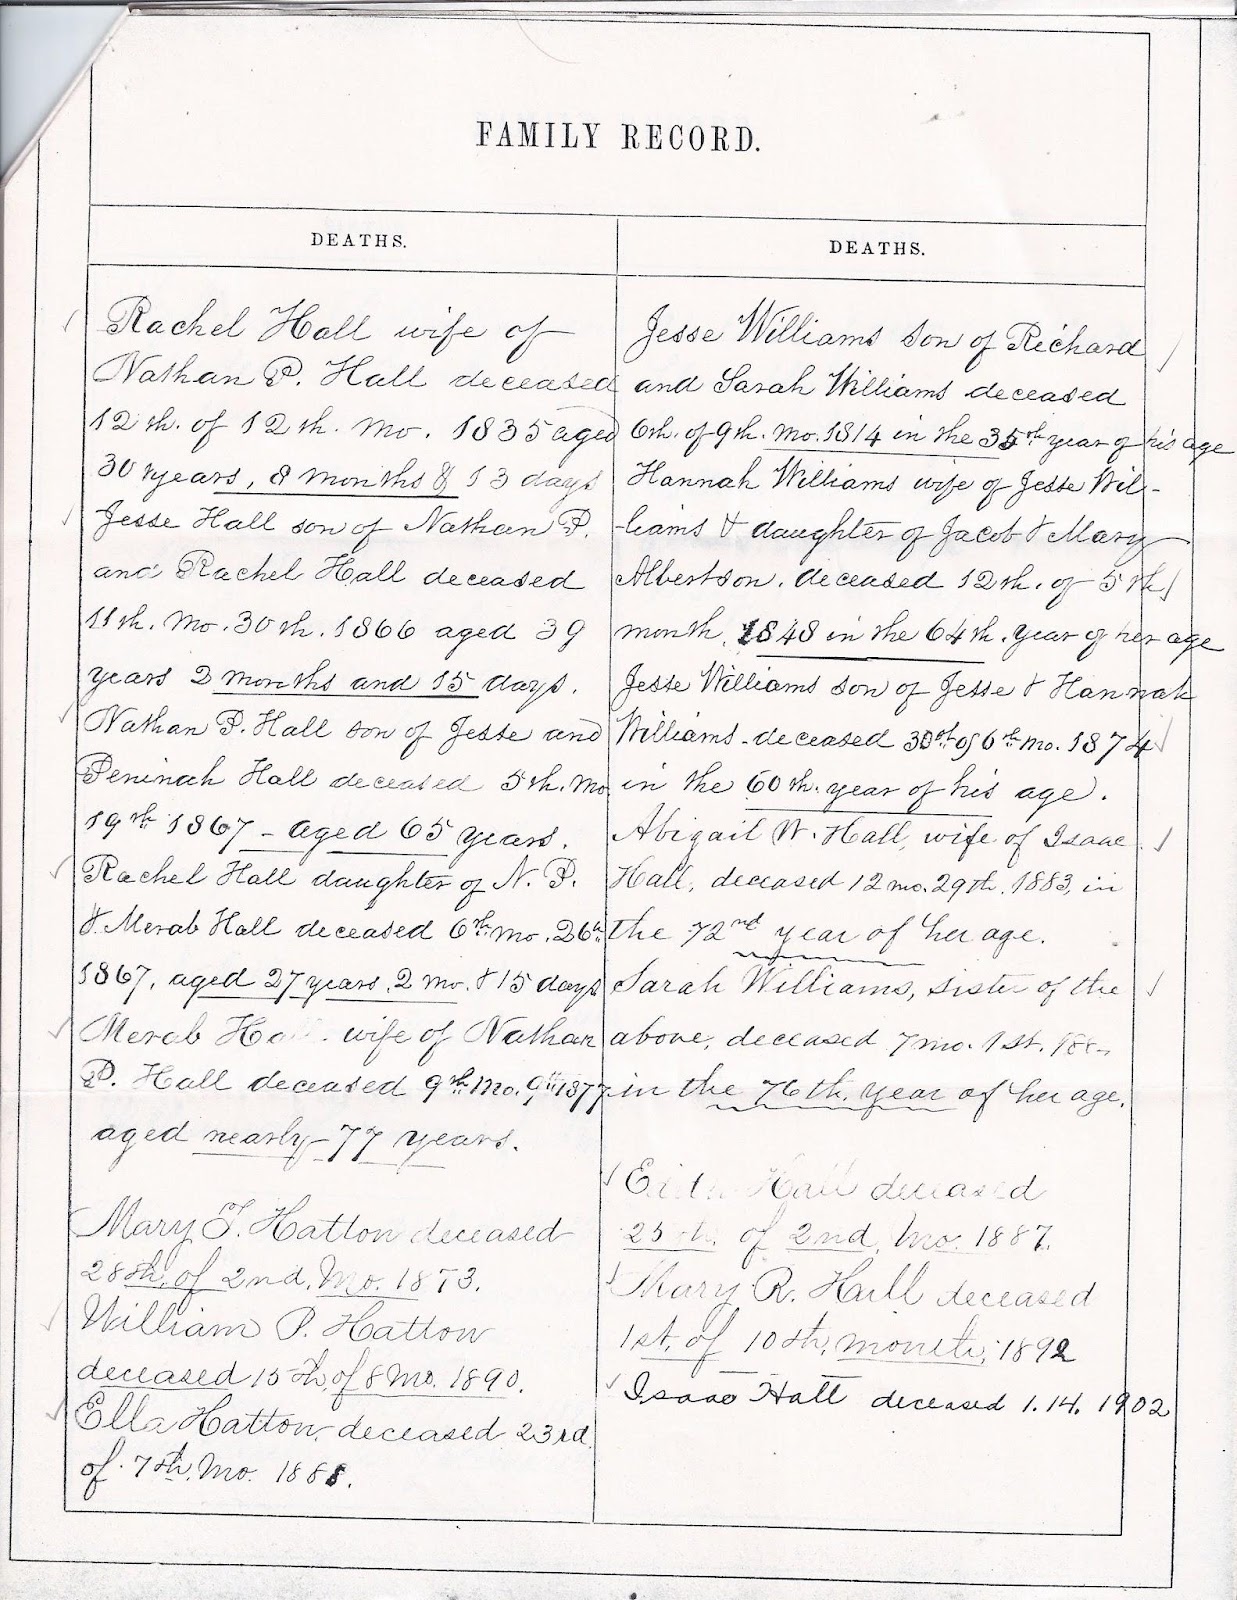 FAMILY RECORD.
DEATHS.
Rachel Hall wife of
Nathan P. Hall deceased
12th. of 12th. Mo. 1835 aged
30 years, 8 months & 13 days
Jesse Hall son of Nathan P.
and Rachel Hall deceased
11th. Mo. 30th. 1866 aged 39
years 2 months and 15 days.
Nathan P. Hall son of Jesse and
Peninah Hall deceased 5th. Mo
19th 1867 - aged 65 years.
Rachel Hall daughter of N. P.
& Merab Hall deceased 6th. Mo. 26th
1867, aged 27 years, 2 mo. & 15 days
Merab Hall wife of Nathan
P. Hall deceased 9th. Mo. 9th 1877
aged nearly 77 years.
Mary T. Hatton deceased
28th, of 2nd, Mo. 1873.
William P. Hatton
deceased 15th, of 8 Mo. 1890.
Ella Hatton, deceased 23rd
of 7th, Mo. 1888.
DEATHS.
Jesse Williams son of Richard
and Sarah Williams deceased
6th. of 9th. Mo. 1814 in the 35th year of his age
Hannah Williams wife of Jesse Wil-
liams & daughter of Jacob & Mary
Albertson. deceased 12th. of 5th
month, 1848 in the 64th. year of her age
Jesse Williams son of Jesse & Hannah
Williams - deceased of 6th Mo. 1874
in the 60th. year of his age.
Abigail W. Hall, wife of Isaac
Hall, deceased 12 mo. 29th, 1883, in
the 72nd year of her age.
Sarah Williams, sister of the
above, deceased 7 mo. 1st.
in the 76th. year of her age.
Edith Hall deceased
25th, of 2nd, Mo. 1887.
Mary R. Hall deceased
1st, of 10th, month, 1892
Isaac Hall deceased 1.14. 1902